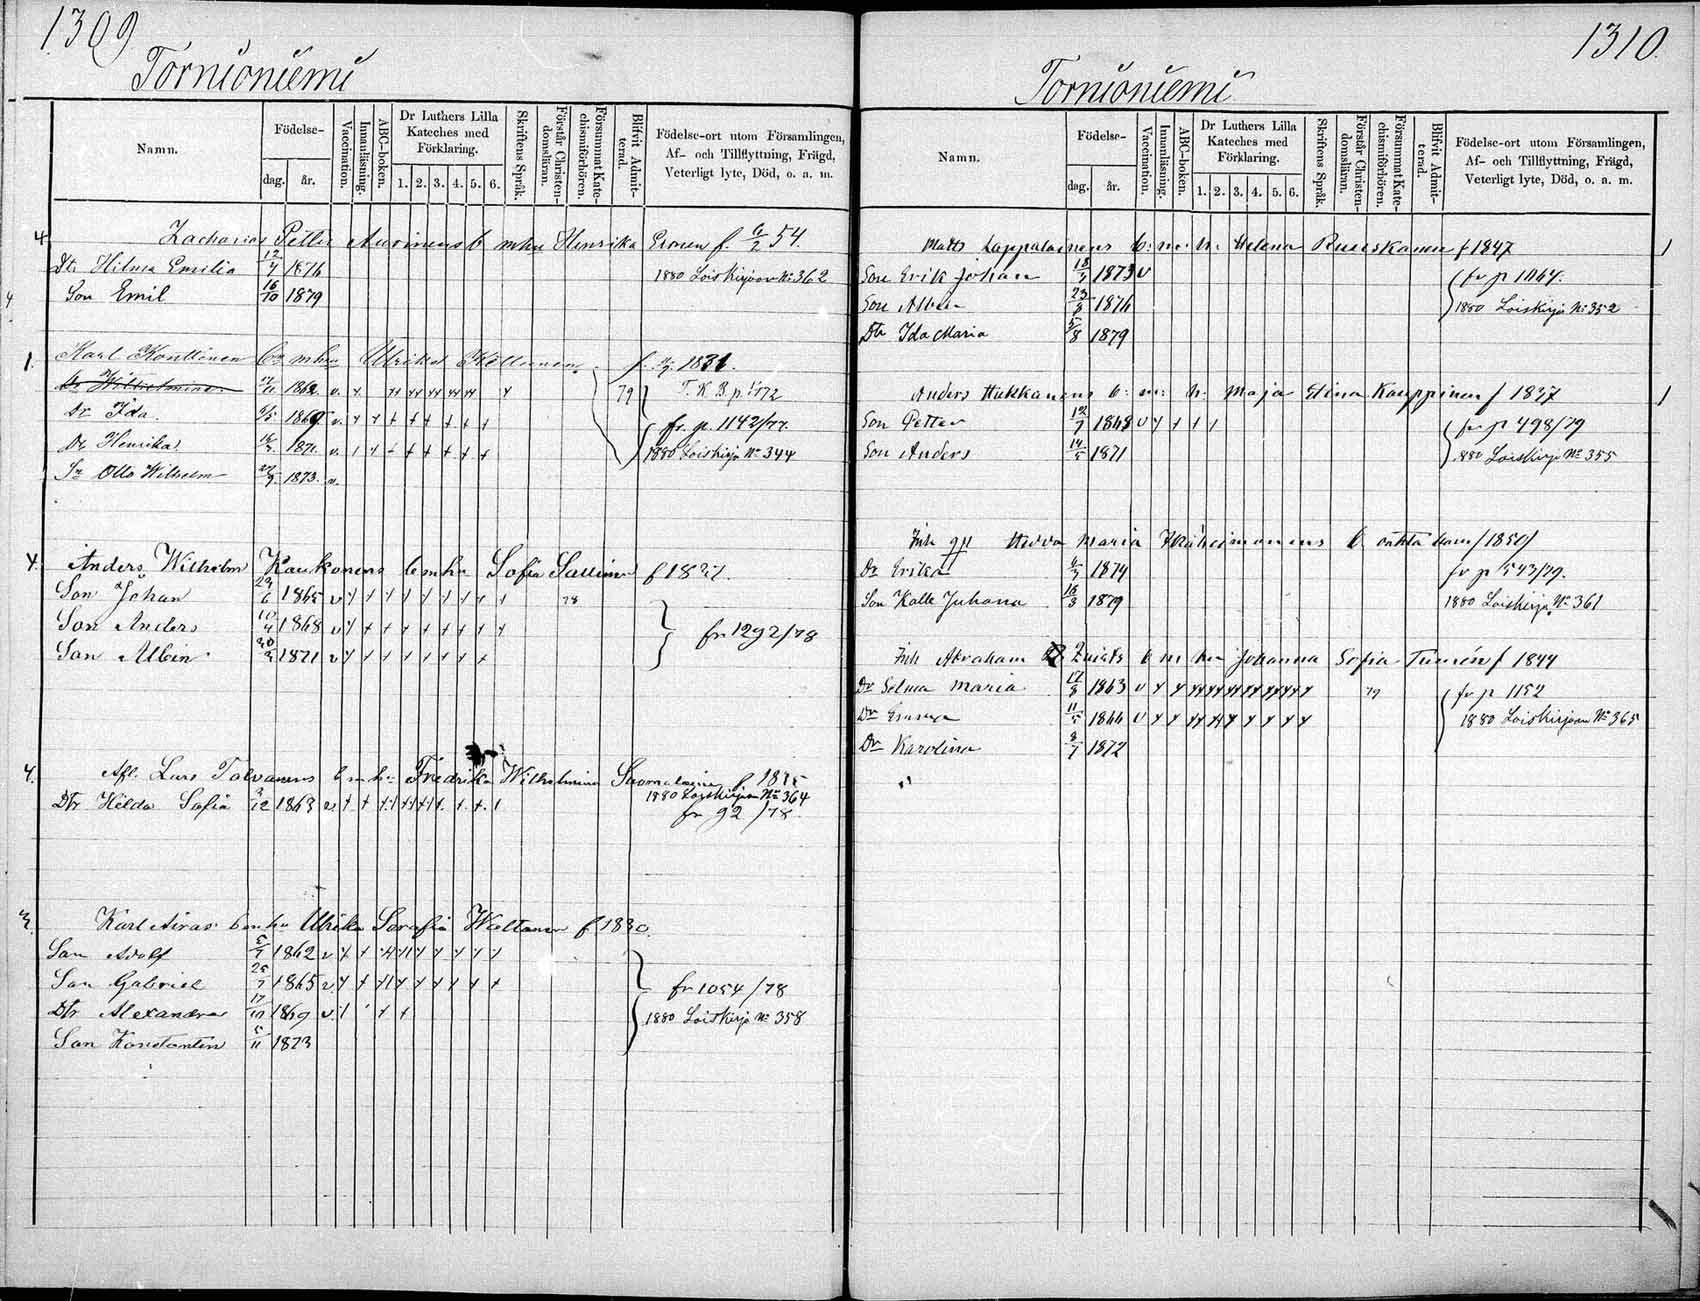 1309
Tornioniemi
Namn.
Födelse-
dag.
år.
Vaccination.
Innanläsning.
ABC-boken.
Dr Luthers Lilla Kateches med Förklaring.
1. 2. 3. 4. 5. 6.
Skriftens Språk.
Förstår Christendomsläran.
Försummat Katechismiförhören.
Blifvit Admitterad.
Födelse-ort utom Församlingen,
Af- och Tillflyttning, Frägd,
Veterligt lyte, Död, o. a. m.
4 Zacharias Petter b mhu Henrika f. 6/2 54.
Dtr Hilma Emilia 12/4 1876 1880 Loiskirjaan No 362
Son Emil 16/10 1879
1. Karl Konttinen mhu Ulrika f. 1831.
Dr Wilhelmina 1862 v. 79 T.K.B. p 172
Dr Ida 9/5 1869 v. fr. p. 1142/77
Dr Henrika 1871 v. 1880 Loiskirja No 344
Sr Otto Wilhelm 1873 v.
4. Anders Wilhelm Kaukonens b mhu Sofia f 1827.
Son Johan 29/6 1865 v 78
Son Anders 10/4 1868 v fr 1292/78
Son Albin 1871 v
4. Afl. Lars Tolvanens b mhu Fredrika Wilhelmina f 1825
Dtr Hilda Sofia 1863 v 1880 Loiskirjaan No 364
fr 92/78
3. Karl Airas b mhu Ulrika Serafia f 1830.
Son Adolf 5/7 1862 v
Son Gabriel 25/7 1865 v fr 1054/78
Dtr Alexandra 17/10 1869 v. 1880 Loiskirja No 358
Son Konstantin 5/11 1873
1310.
Tornioniemi
Namn.
Födelse-
dag.
år.
Vaccination.
Innanläsning.
ABC-boken.
Dr Luthers Lilla Kateches med Förklaring.
1. 2. 3. 4. 5. 6.
Skriftens Språk.
Förstår Christendomsläran.
Försummat Katechismiförhören.
Blifvit Admitterad.
Födelse-ort utom Församlingen,
Af- och Tillflyttning, Frägd,
Veterligt lyte, Död, o. a. m.
Matts Lappalainens b. m. h. Helena Ruuskanen f 1847
Son Erik Johan 1873 v fr p 1064.
Son Albin 23/8 1876 1880 Loiskirja No 352
Dtr Ida Maria 5/8 1879
Anders Hukkanens b. m. h. Maja Stina Kauppinen f 1837
Son Petter 12/7 1868 v fr p 498/79
Son Anders 14/5 1871 1880 Loiskirja No 355
Inh Hedda Maria b oäkta barn (1850)
Dr Erika 1874 fr p 543/79.
Son Kalle Juhana 16/8 1879 1880 Loiskirja No 361
Inh Abraham b m hu Johanna Sofia f 1844
Dr Selma Maria 17/8 1863 v 79 fr p 1152
Dr 11/5 1866 v 1880 Loiskirjaan No 365
Dr Karolina 8/7 1872